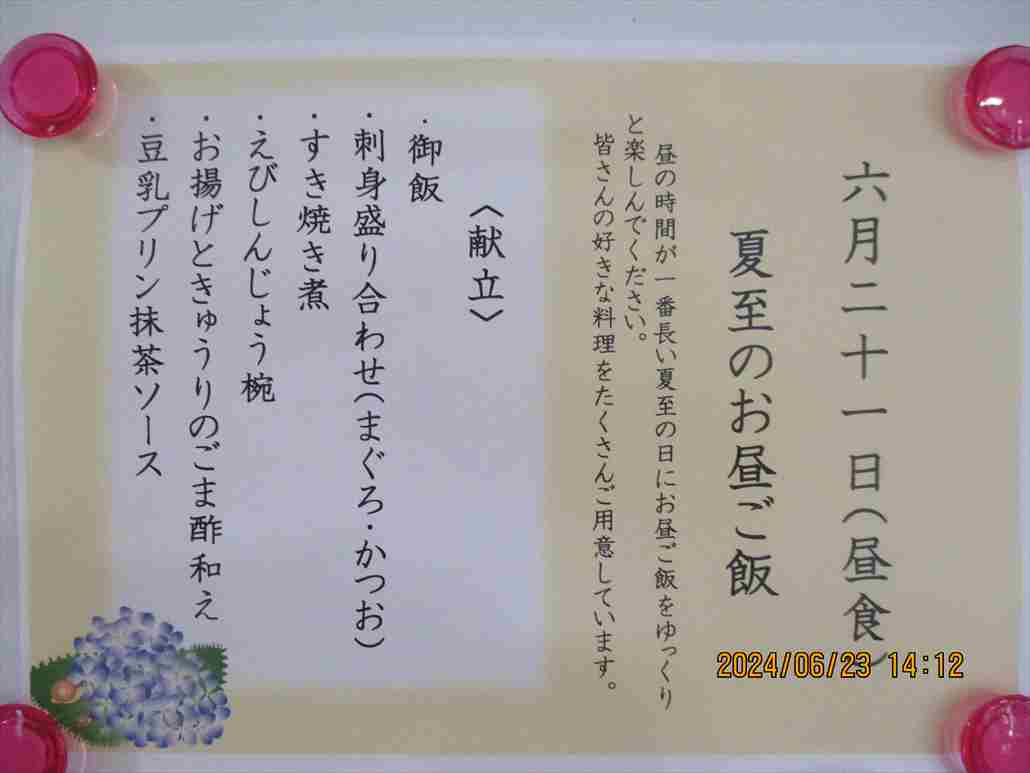 六月二十一日(昼食)
夏至のお昼ご飯
昼の時間が一番長い夏至の日にお昼ご飯をゆっくり
と楽しんでください。
皆さんの好きな料理をたくさんご用意しています。
〈献立〉
・御飯
・刺身盛り合わせ(まぐろ・かつお)
・すき焼き煮
・えびしんじょう椀
・お揚げときゅうりのごま酢和え
・豆乳プリン抹茶ソース
2024/06/23 14:12